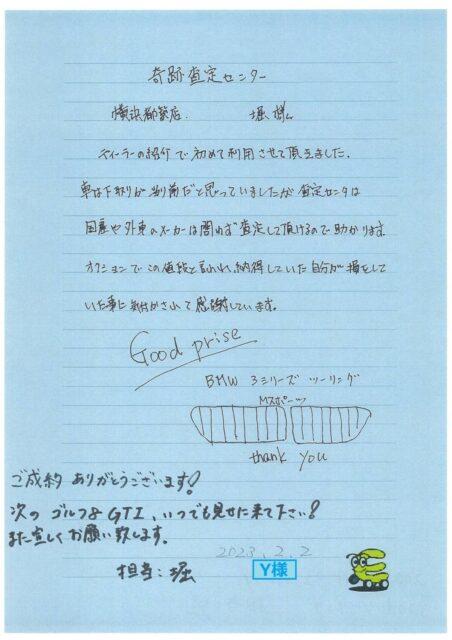 奇跡査定センター
横浜都築店 堀様
ディーラーの紹介で初めて利用させて頂きました。
車は下取りが当り前だと思っていましたが査定センタは
国産や外車のメーカーは問わず査定して頂けるので助かります
オクションでこの値段と言われ、納得していた自分が損をして
いた事に気付かされて感謝しています。
Good prise
BMW 3シリーズ ツーリング
Mスポーツ
thank you
ご成約ありがとうございます!
次のゴルフ8GTI、いつでも見せに来て下さい!
また宜しくお願い致します。
2023.2.2
担当:堀
Y様